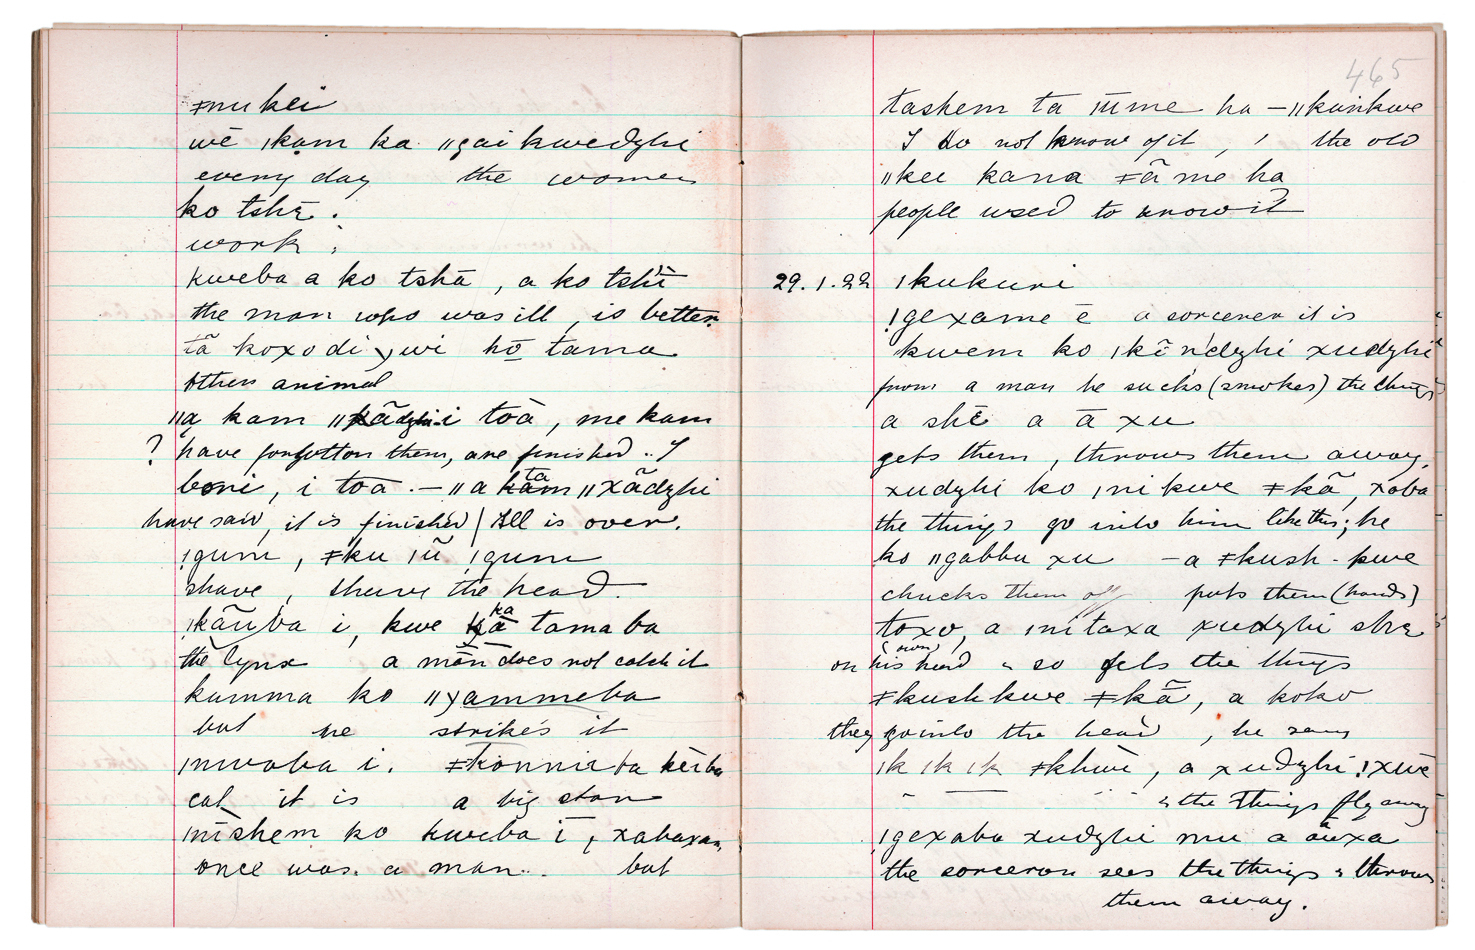 ǂnu kei
wē ǀkam ka ǁgaikwedzhi
every day the women
ko tshē.
work;
kweba a ko tshā, a ko tshī
the man who was ill, is better
tā koxo di wi hō tama
other animal
ǁa kam ǁkādzhi i toà, me kam
? have forgotten them, are finished .. I
boni, i toā . — ǁa kam ta ǁxādzhi
have said, it is finished / All is over.
ǃgum, ǂku ǀū ǃgum
shave, shave the head.
ǀkāuba i, kwe ka tama ba
the lynx a man does not catch it
kamma ko ǁyammeba
but he strikes it
ǀnwaba i. ǂkonniaba kēiba
cat it is a big star
ǀnīshem ko kweba ī, xabaxan,
once was a man .. but
465
tashem ta ǀūme ha — ǁkaiǹkwe
I do not know of it, ' the old
ǁkee kana ǂā me ha
people used to know it
29.1.22 ǀkukuri
ǃgexame ē a sorcerer it is
kwem ko ǀkā ndzhi xudzhi
from a man he sucks (smokes) the things
a shē a ā xu
gets them, throws them away,
xudzhi ko ǀni kwe ǂkā, xaba
the things go into him like this; he
ko ǁgabbu xu — a ǂkush-kwe
chucks them off puts them (hands)
toxo, a ǀnītaxa xudzhi shē
on his (own) head & so gets the things
ǂkushkwe ǂkā, a koko
they go into the head, he says
ǀk ǀk ǀk ǂkhwè, a xudzhi ǃxwē
& the things fly away
ǃgexaba xudzhi mu a āuxa
the sorcerer sees the things & throws
them away.